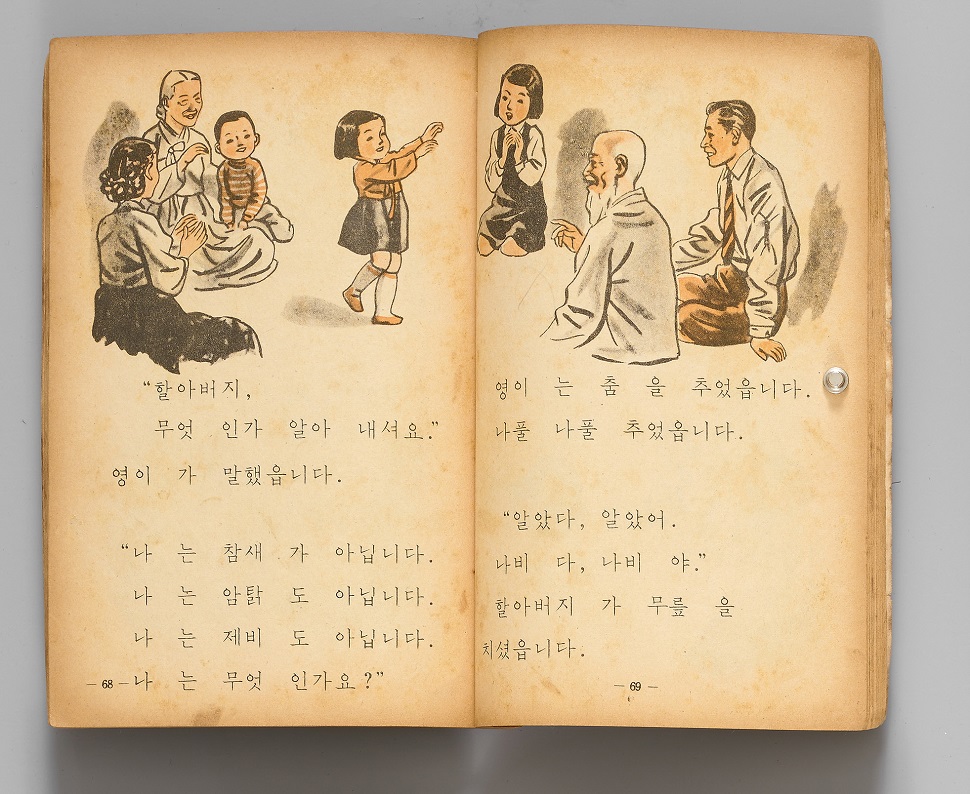 “할아버지,
무엇 인가 알아 내셔요.”
영이 가 말했읍니다.
“나 는 참새 가 아닙니다.
나 는 암탉 도 아닙니다.
나 는 제비 도 아닙니다.
나 는 무엇 인가요?”
— 68 —
영이 는 춤 을 추었읍니다.
나풀 나풀 추었읍니다.
“알았다, 알았어.
나비 다, 나비 야.”
할아버지 가 무릎 을
치셨읍니다.
— 69 —